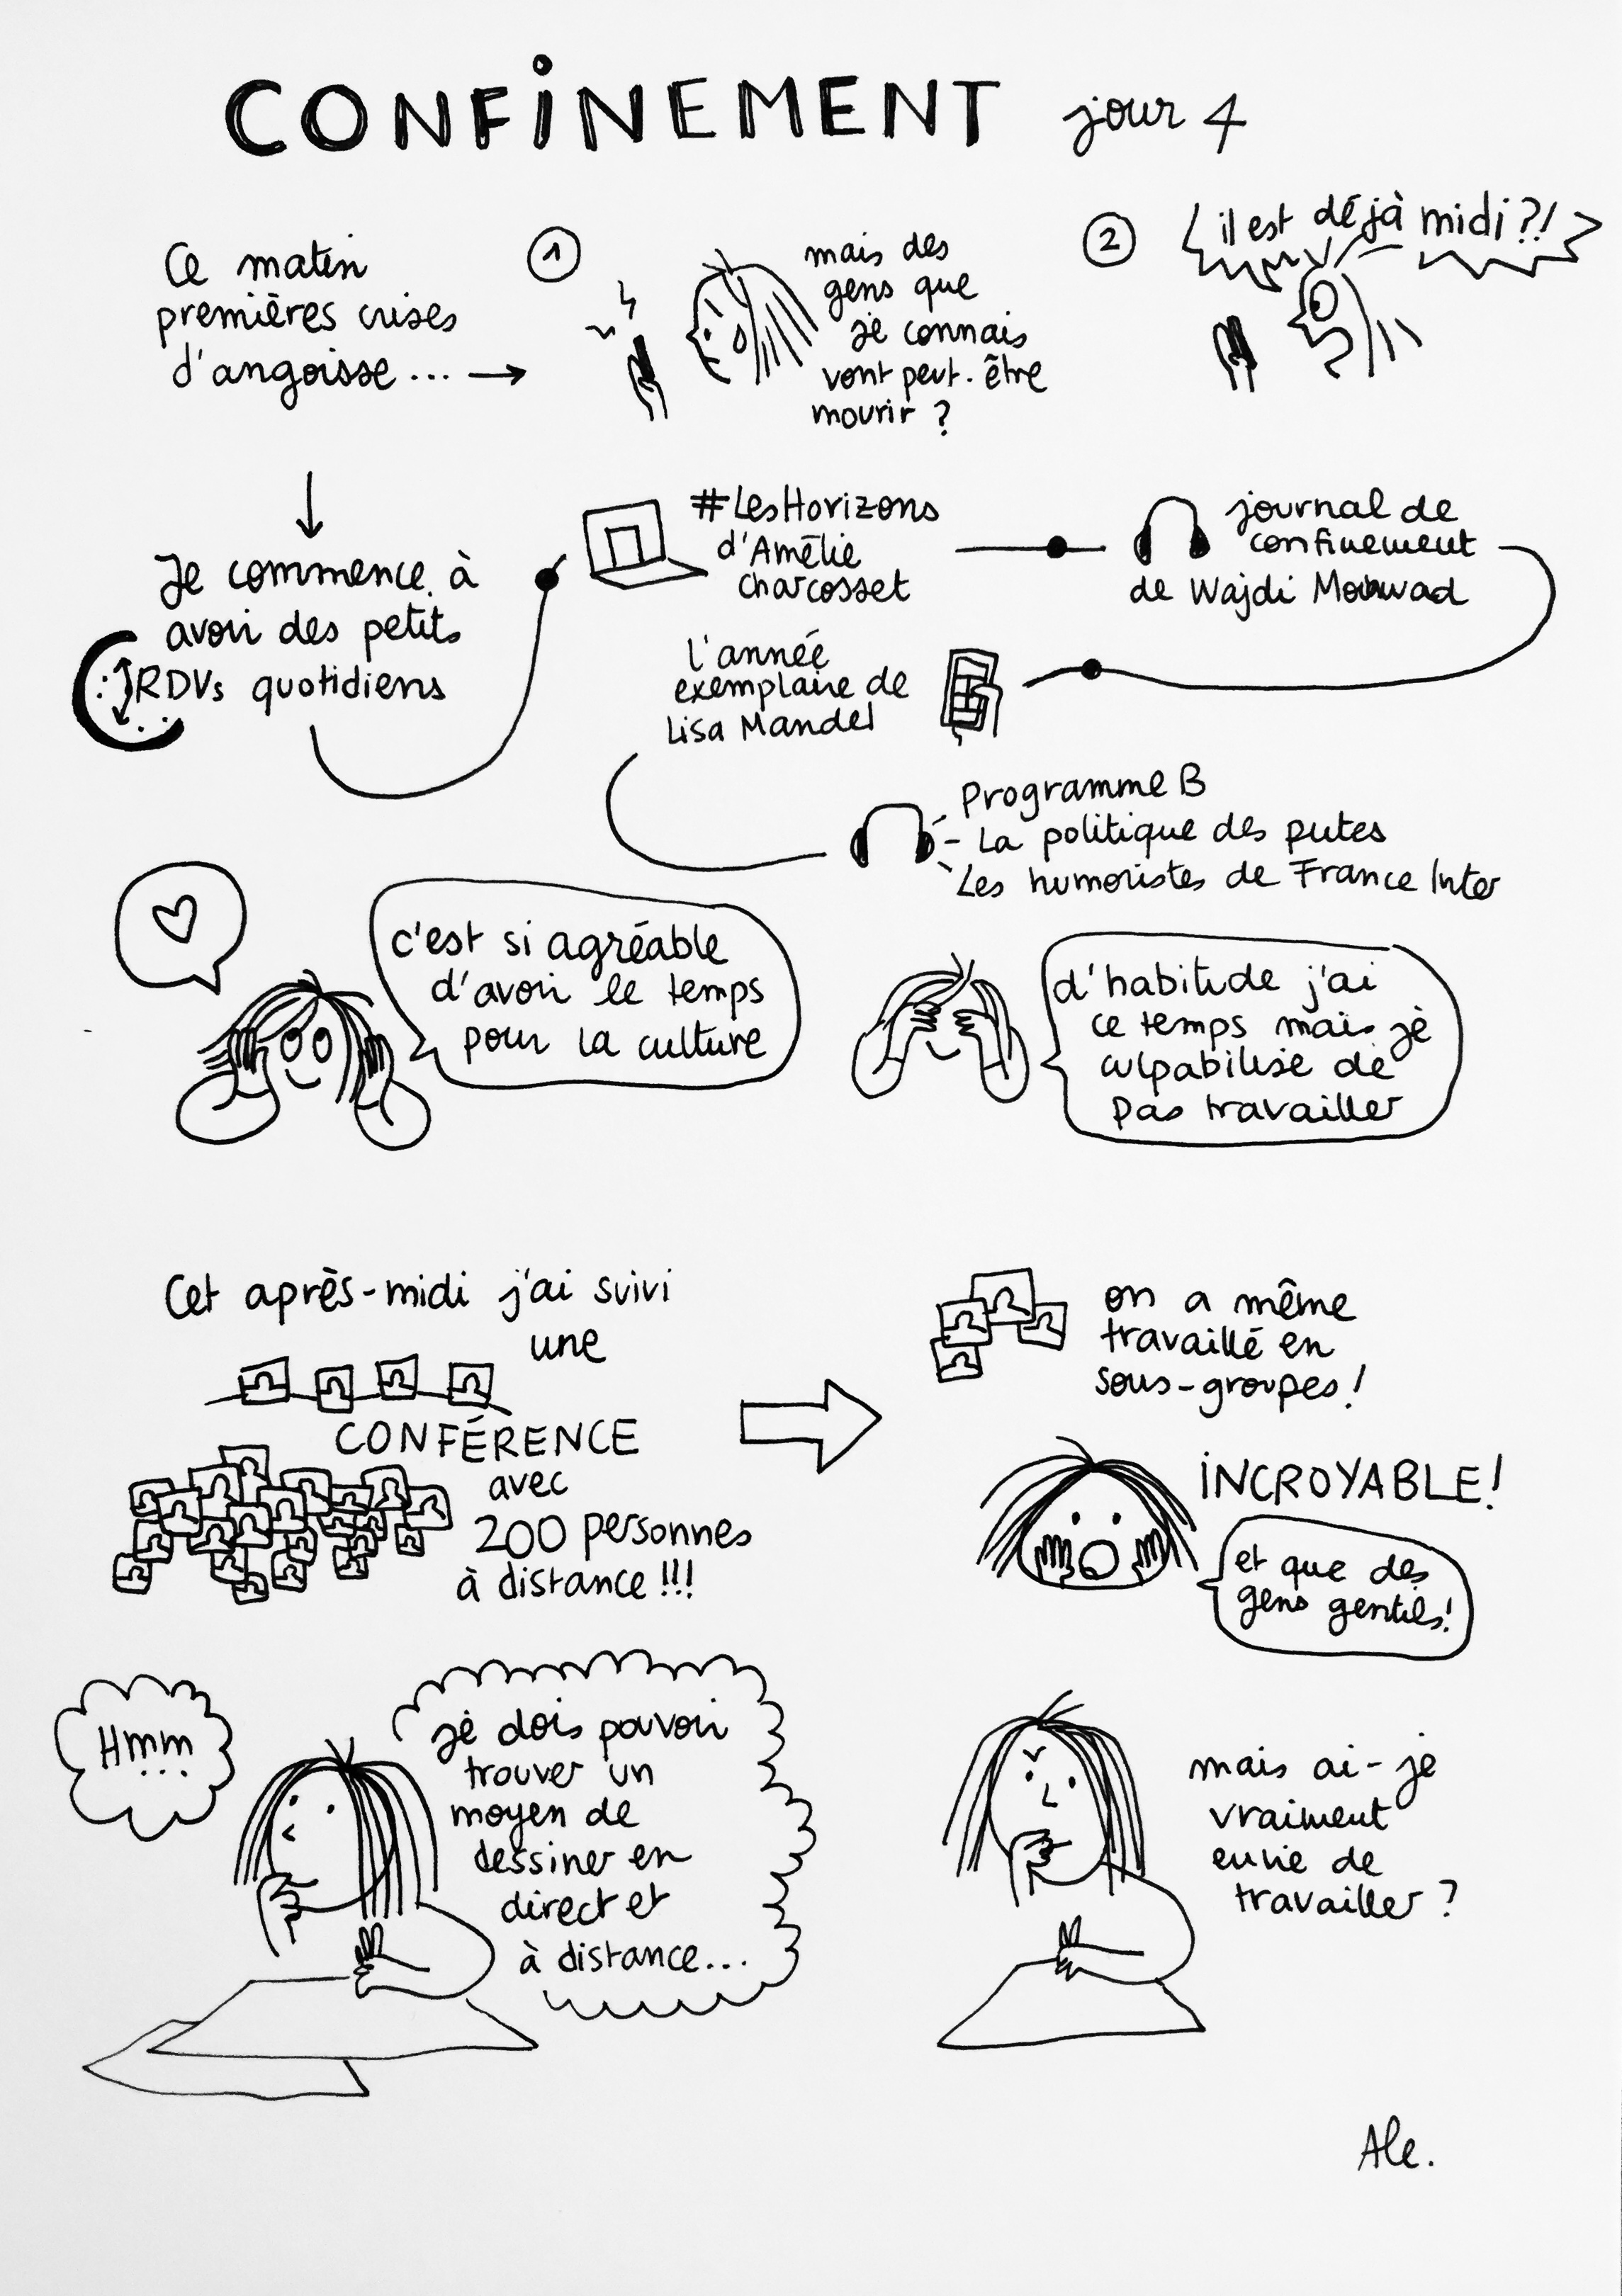 CONFINEMENT jour 4
Ce matin
premières crises
d'angoisse...
1
mais des
gens que
je connais
vont peut-être
mourir ?
2
il est déjà midi ?!
Je commence à
avoir des petits
RDVs quotidiens
#LesHorizons
d'Amélie
Charcosset
journal de
confinement
de Wajdi Mouawad
l'année
exemplaire de
Lisa Mandel
Programme B
- La politique des putes
Les humoristes de France Inter
c'est si agréable
d'avoir le temps
pour la culture
d'habitude j'ai
ce temps mais je
culpabilise de
pas travailler
Cet après-midi j'ai suivi
une
CONFÉRENCE
avec
200 personnes
à distance !!!
on a même
travaillé en
sous-groupes !
INCROYABLE !
et que des
gens gentils !
Hmm
...
je dois pouvoir
trouver un
moyen de
dessiner en
direct et
à distance...
mais ai-je
vraiment
envie de
travailler ?
Ale.